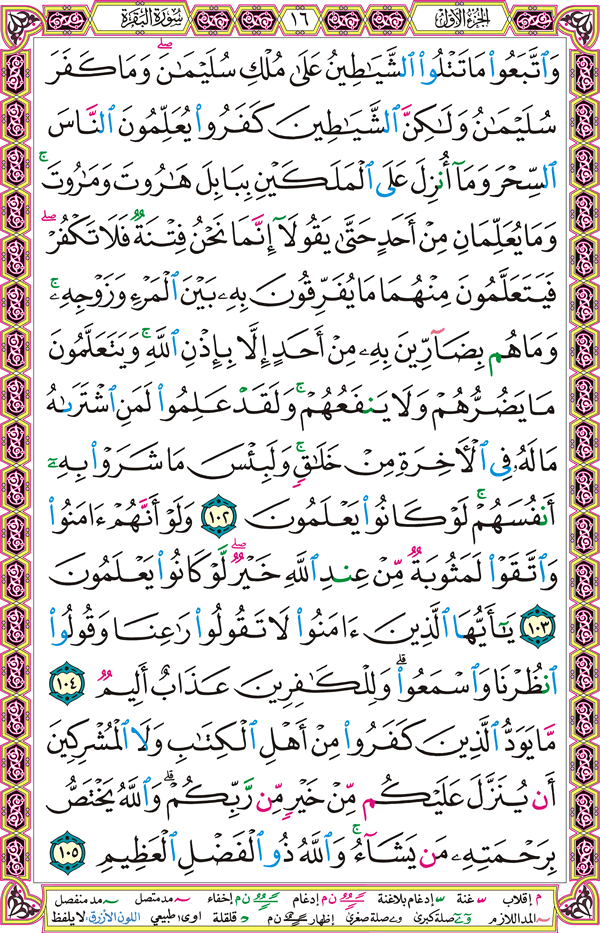 الجزء الأول
١٦
سورة البقرة
وَٱتَّبَعُوا۟ مَا تَتْلُوا۟ ٱلشَّيَـٰطِينُ عَلَىٰ مُلْكِ سُلَيْمَـٰنَ ۖ وَمَا كَفَرَ
سُلَيْمَـٰنُ وَلَـٰكِنَّ ٱلشَّيَـٰطِينَ كَفَرُوا۟ يُعَلِّمُونَ ٱلنَّاسَ
ٱلسِّحْرَ وَمَآ أُنزِلَ عَلَى ٱلْمَلَكَيْنِ بِبَابِلَ هَـٰرُوتَ وَمَـٰرُوتَ ۚ
وَمَا يُعَلِّمَانِ مِنْ أَحَدٍ حَتَّىٰ يَقُولَآ إِنَّمَا نَحْنُ فِتْنَةٌ فَلَا تَكْفُرْ ۖ
فَيَتَعَلَّمُونَ مِنْهُمَا مَا يُفَرِّقُونَ بِهِۦ بَيْنَ ٱلْمَرْءِ وَزَوْجِهِۦ ۚ
وَمَا هُم بِضَآرِّينَ بِهِۦ مِنْ أَحَدٍ إِلَّا بِإِذْنِ ٱللَّهِ ۚ وَيَتَعَلَّمُونَ
مَا يَضُرُّهُمْ وَلَا يَنفَعُهُمْ ۚ وَلَقَدْ عَلِمُوا۟ لَمَنِ ٱشْتَرَىٰهُ
مَا لَهُۥ فِى ٱلْـَٔاخِرَةِ مِنْ خَلَـٰقٍ ۚ وَلَبِئْسَ مَا شَرَوْا۟ بِهِۦٓ
أَنفُسَهُمْ ۚ لَوْ كَانُوا۟ يَعْلَمُونَ ١٠٢ وَلَوْ أَنَّهُمْ ءَامَنُوا۟
وَٱتَّقَوْا۟ لَمَثُوبَةٌ مِّنْ عِندِ ٱللَّهِ خَيْرٌ ۖ لَّوْ كَانُوا۟ يَعْلَمُونَ
١٠٣ يَـٰٓأَيُّهَا ٱلَّذِينَ ءَامَنُوا۟ لَا تَقُولُوا۟ رَٰعِنَا وَقُولُوا۟
ٱنظُرْنَا وَٱسْمَعُوا۟ ۗ وَلِلْكَـٰفِرِينَ عَذَابٌ أَلِيمٌ ١٠٤
مَّا يَوَدُّ ٱلَّذِينَ كَفَرُوا۟ مِنْ أَهْلِ ٱلْكِتَـٰبِ وَلَا ٱلْمُشْرِكِينَ
أَن يُنَزَّلَ عَلَيْكُم مِّنْ خَيْرٍ مِّن رَّبِّكُمْ ۗ وَٱللَّهُ يَخْتَصُّ
بِرَحْمَتِهِۦ مَن يَشَآءُ ۚ وَٱللَّهُ ذُو ٱلْفَضْلِ ٱلْعَظِيمِ ١٠٥
م إقلاب س غنة س إدغام بلاغنة ن م إدغام ن م إخفاء مد متصل مد منفصل
المد اللازم صلة كبرى صلة صغرى إظهار ن م د قلقلة اوى: طبيعي اللون الأزرق: لا يلفظ